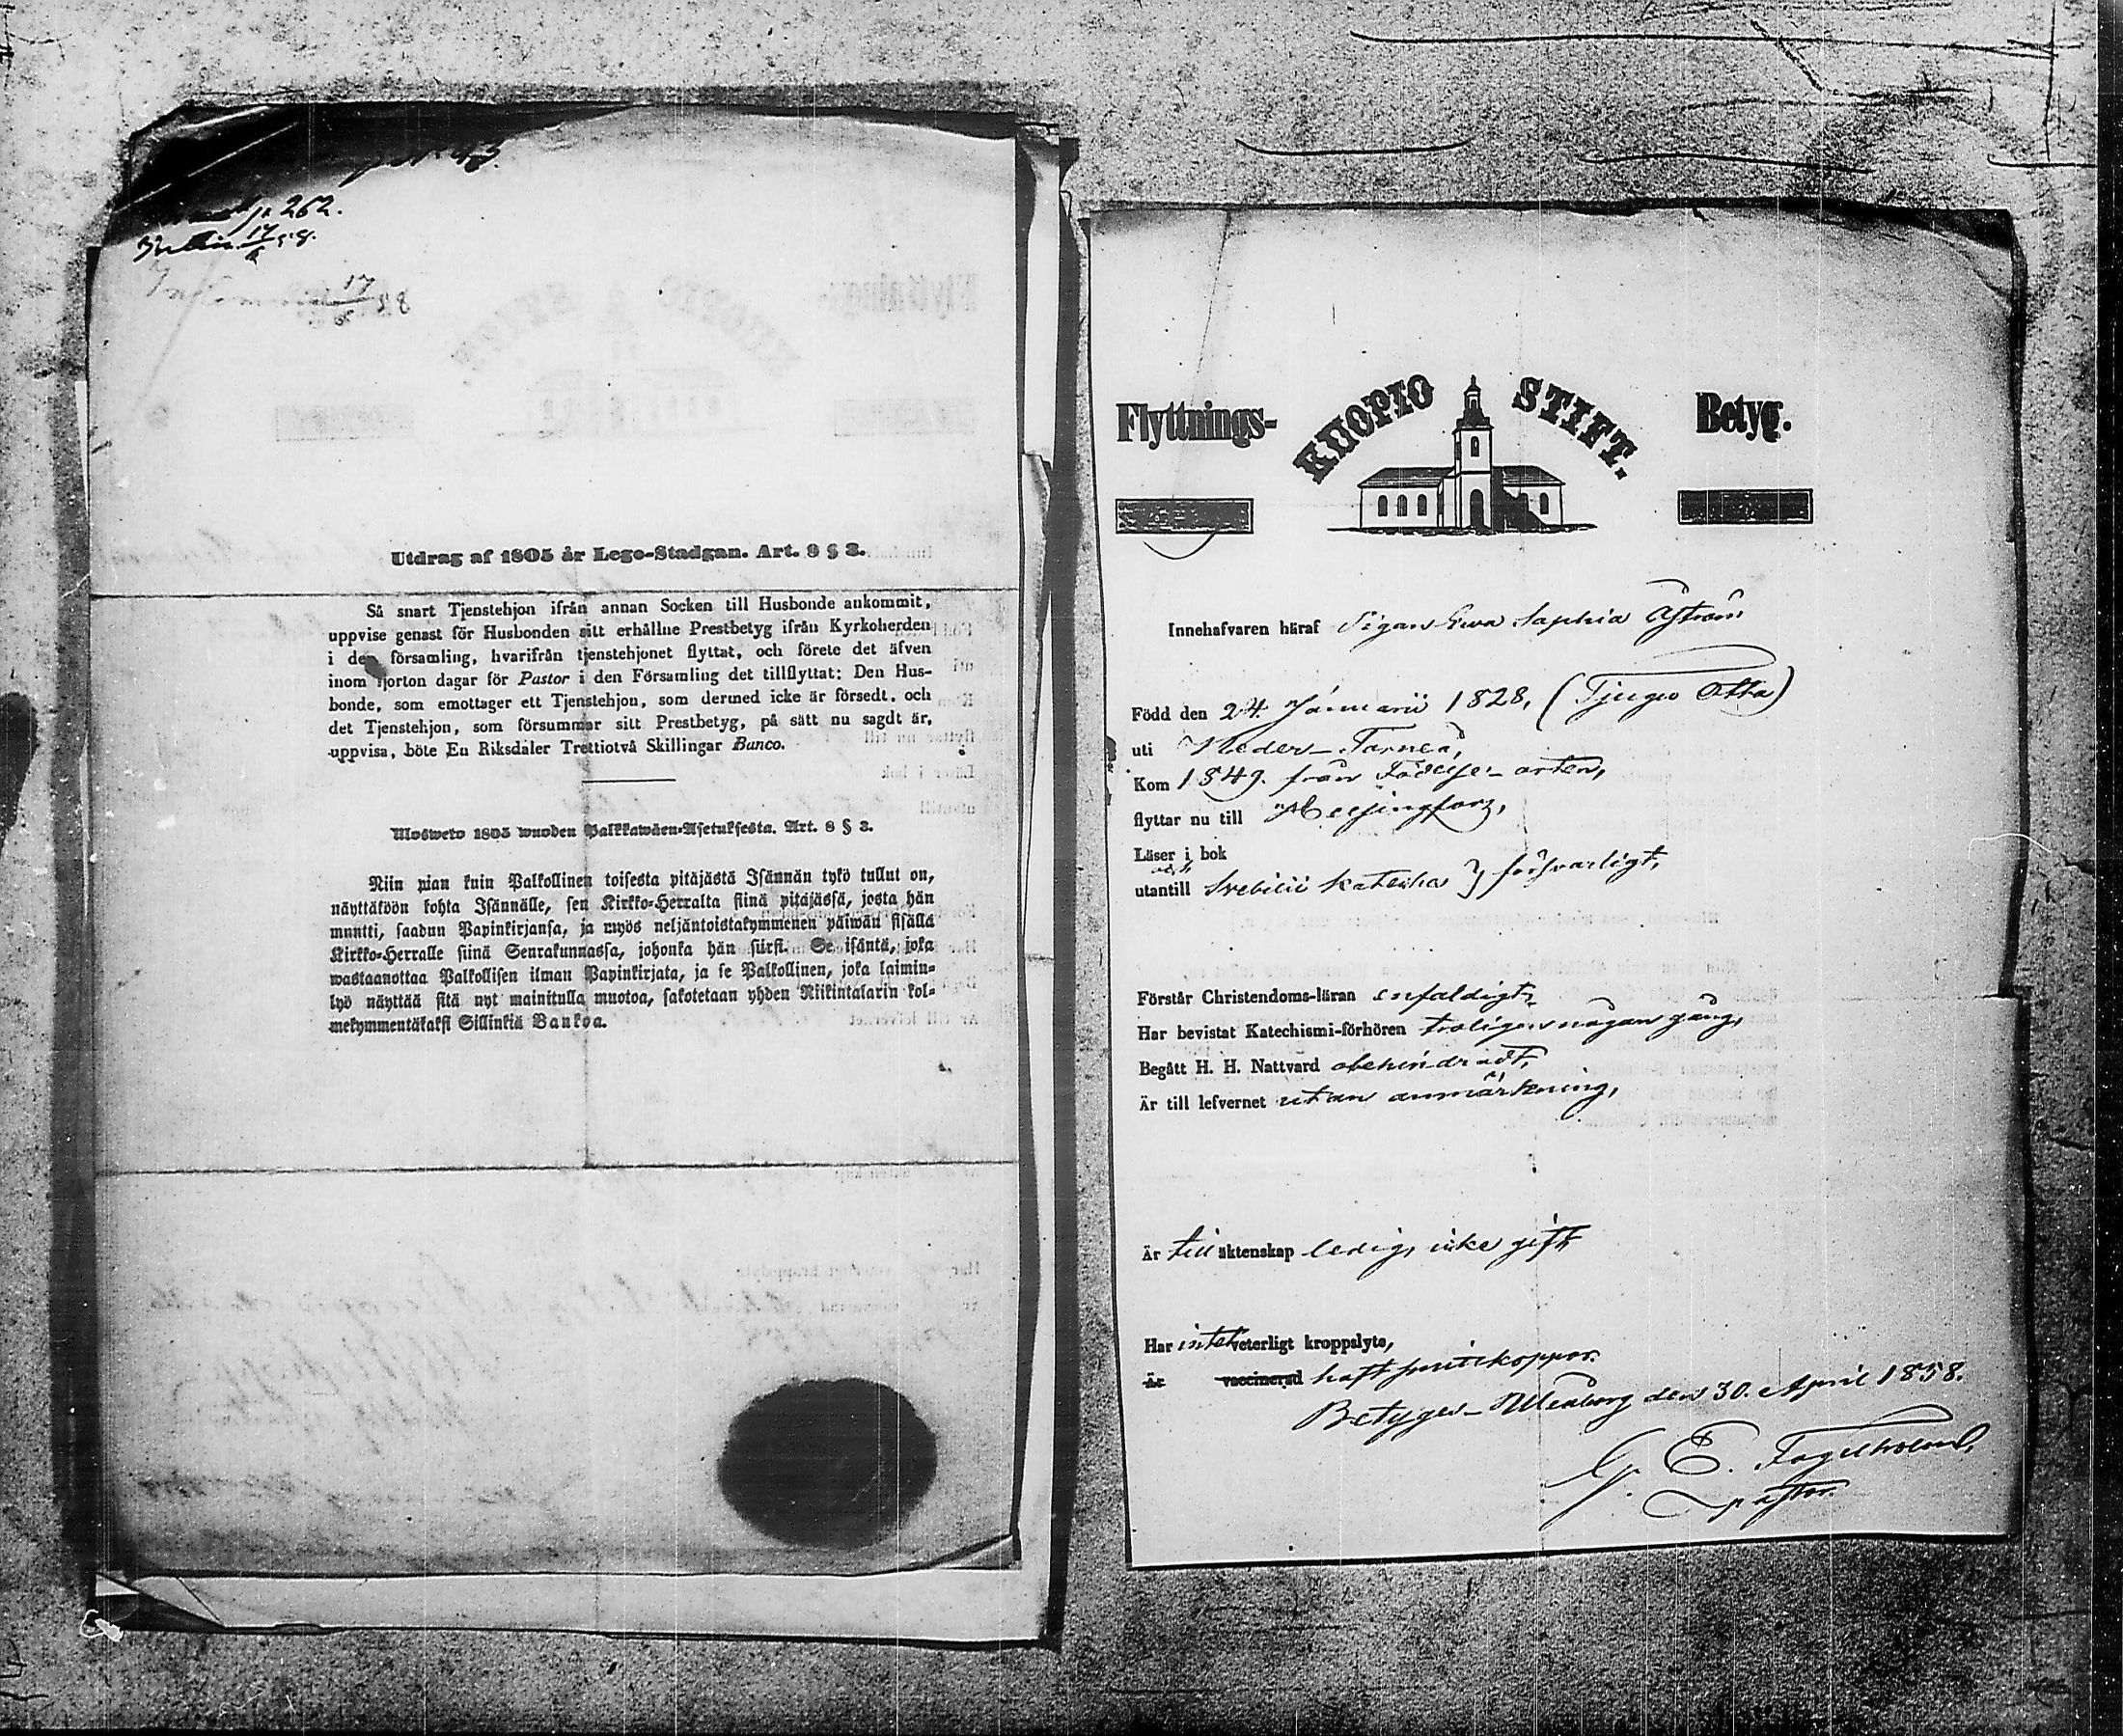 p 262.
17/6 58.
17/6 58
Utdrag af 1805 år Lego-Stadgan. Art. 9 § 3.
Så snart Tjenstehjon ifrån annan Socken till Husbonde ankommit,
uppvise genast för Husbonden sitt erhållne Prestbetyg ifrån Kyrkoherden
i den församling, hvarifrån tjenstehjonet flyttat, och förete det äfven
inom fjorton dagar för Pastor i den Församling det tillflyttat: Den Hus-
bonde, som emottager ett Tjenstehjon, som dermed icke är försedt, och
det Tjenstehjon, som försummar sitt Prestbetyg, på sätt nu sagdt är,
uppvisa, böte En Riksdaler Trettiotvå Skillingar Banco.
Ulosweto 1805 wuoden Palkkawäen-Asetuksesta. Art. 8 § 3.
Niin pian kuin Palkollinen toisesta pitäjästä Isännän tykö tullut on,
näyttäköön kohta Isännälle, sen Kirkko-Herralta siinä pitäjässä, josta hän
muutti, saadun Papinkirjansa, ja myös neljäntoistakymmenen päiwän sisällä
Kirkko-Herralle siinä Seurakunnassa, johonka hän siirsi. Se isäntä, joka
wastaanottaa Palkollisen ilman Papinkirjata, ja se Palkollinen, joka laimin-
lyö näyttää sitä nyt mainitulla muotoa, sakotetaan yhden Riikintalarin kol-
mekymmentäkaksi Sillinkiä Bankoa.
Flyttnings- KUOPIO STIFT. Betyg.
Innehafvaren häraf Pigan Ewa Sophia Åström
Född den 24. Januarii 1828, (Tjugu Åtta)
uti Neder-Torneå,
Kom 1849. från Födelse-orten,
flyttar nu till Helsingfors,
Läser i bok
och
utantill Svebilii Kateches } försvarligt,
Förstår Christendoms-läran enfaldigt,
Har bevistat Katechismi-förhören troligen någon gång,
Begått H. H. Nattvard obehindradt,
Är till lefvernet utan anmärkning,
Är till äktenskap ledig, icke gift
Har intet veterligt kroppslyte,
Är vaccinerad haft smittkoppor.
Betygar Uleåborg den 30. April 1858.
G. E. Fogelholm,
pastor.